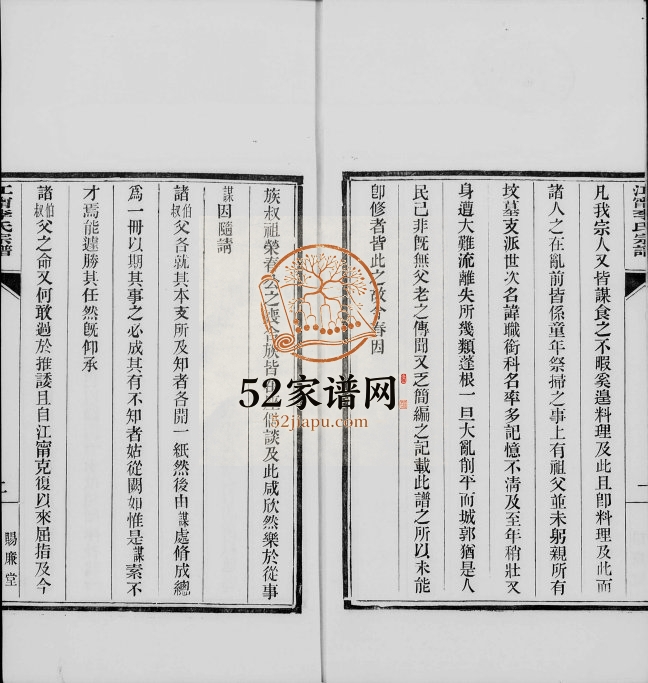 江甯李氏宗譜
凡我宗人又皆謀食之不暇奚遑料理及此且卽料理及此而
諸人之在亂前皆係童年祭掃之事上有祖父並未躬親所有
坟墓支派世次名諱職銜科名率多記憶不清及至年稍壯又
身遭大難流離失所幾類蓬根一旦大亂削平而城郭猶是人
民已非旣無父老之傳聞又乏簡編之記載此譜之所以未能
卽修者皆此之故今春因
族叔祖榮春公之喪合族皆 偶談及此咸欣然樂於從事
謀因隨請
諸伯叔父各就其本支所及知者各開一紙然後由謀處脩成總
爲一冊以期其事之必成其有不知者姑從闕如惟是謀素不
才焉能遽勝其任然旣仰承
諸伯叔父之命又何敢過於推諉且自江甯克復以來屈指及今
江甯李氏宗譜
賜廉堂
52家谱网
52jiapu.com